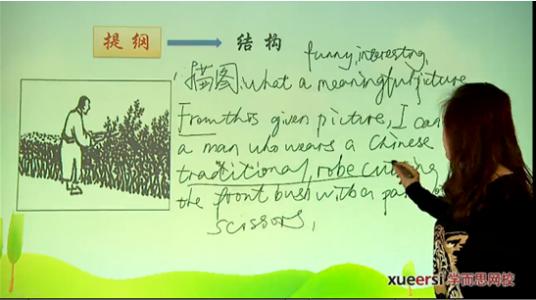 提纲 结构
funny, interesting,
描图, what a meaningful picture
From this given picture, I can
a man who wears a Chinese
traditional robe cutting
the front bush with a pa
scissors,
xueersi 学而思网校